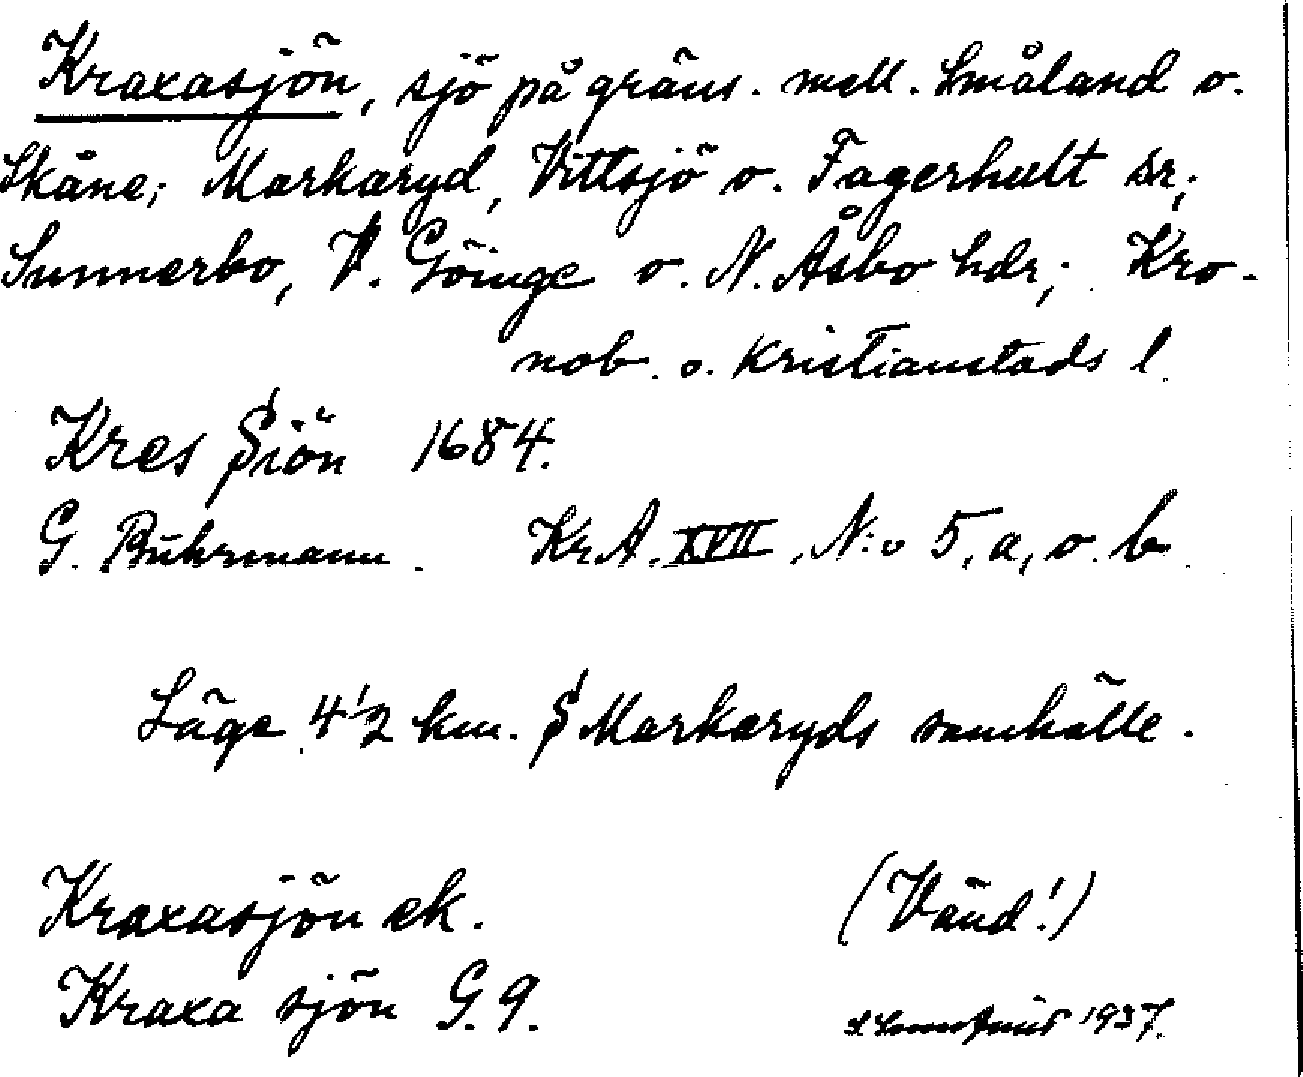 Kraxasjön, sjö på gräns. mell. Småland o.
Skåne; Markaryd, Vittsjö o. Fagerhult sr;
Sunnerbo, V. Göinge o. N. Åsbo hdr; Kro-
nob. o. Kristianstads l.
Kres Siön 1684.
G. Buhrmann. Kr.A. XVII, N:o 5, a, o. b.
Läge 4 1/2 km. S Markaryds samhälle.
Kraxasjön ek. (Vänd!)
Kraxa sjön G. 9.
1937.